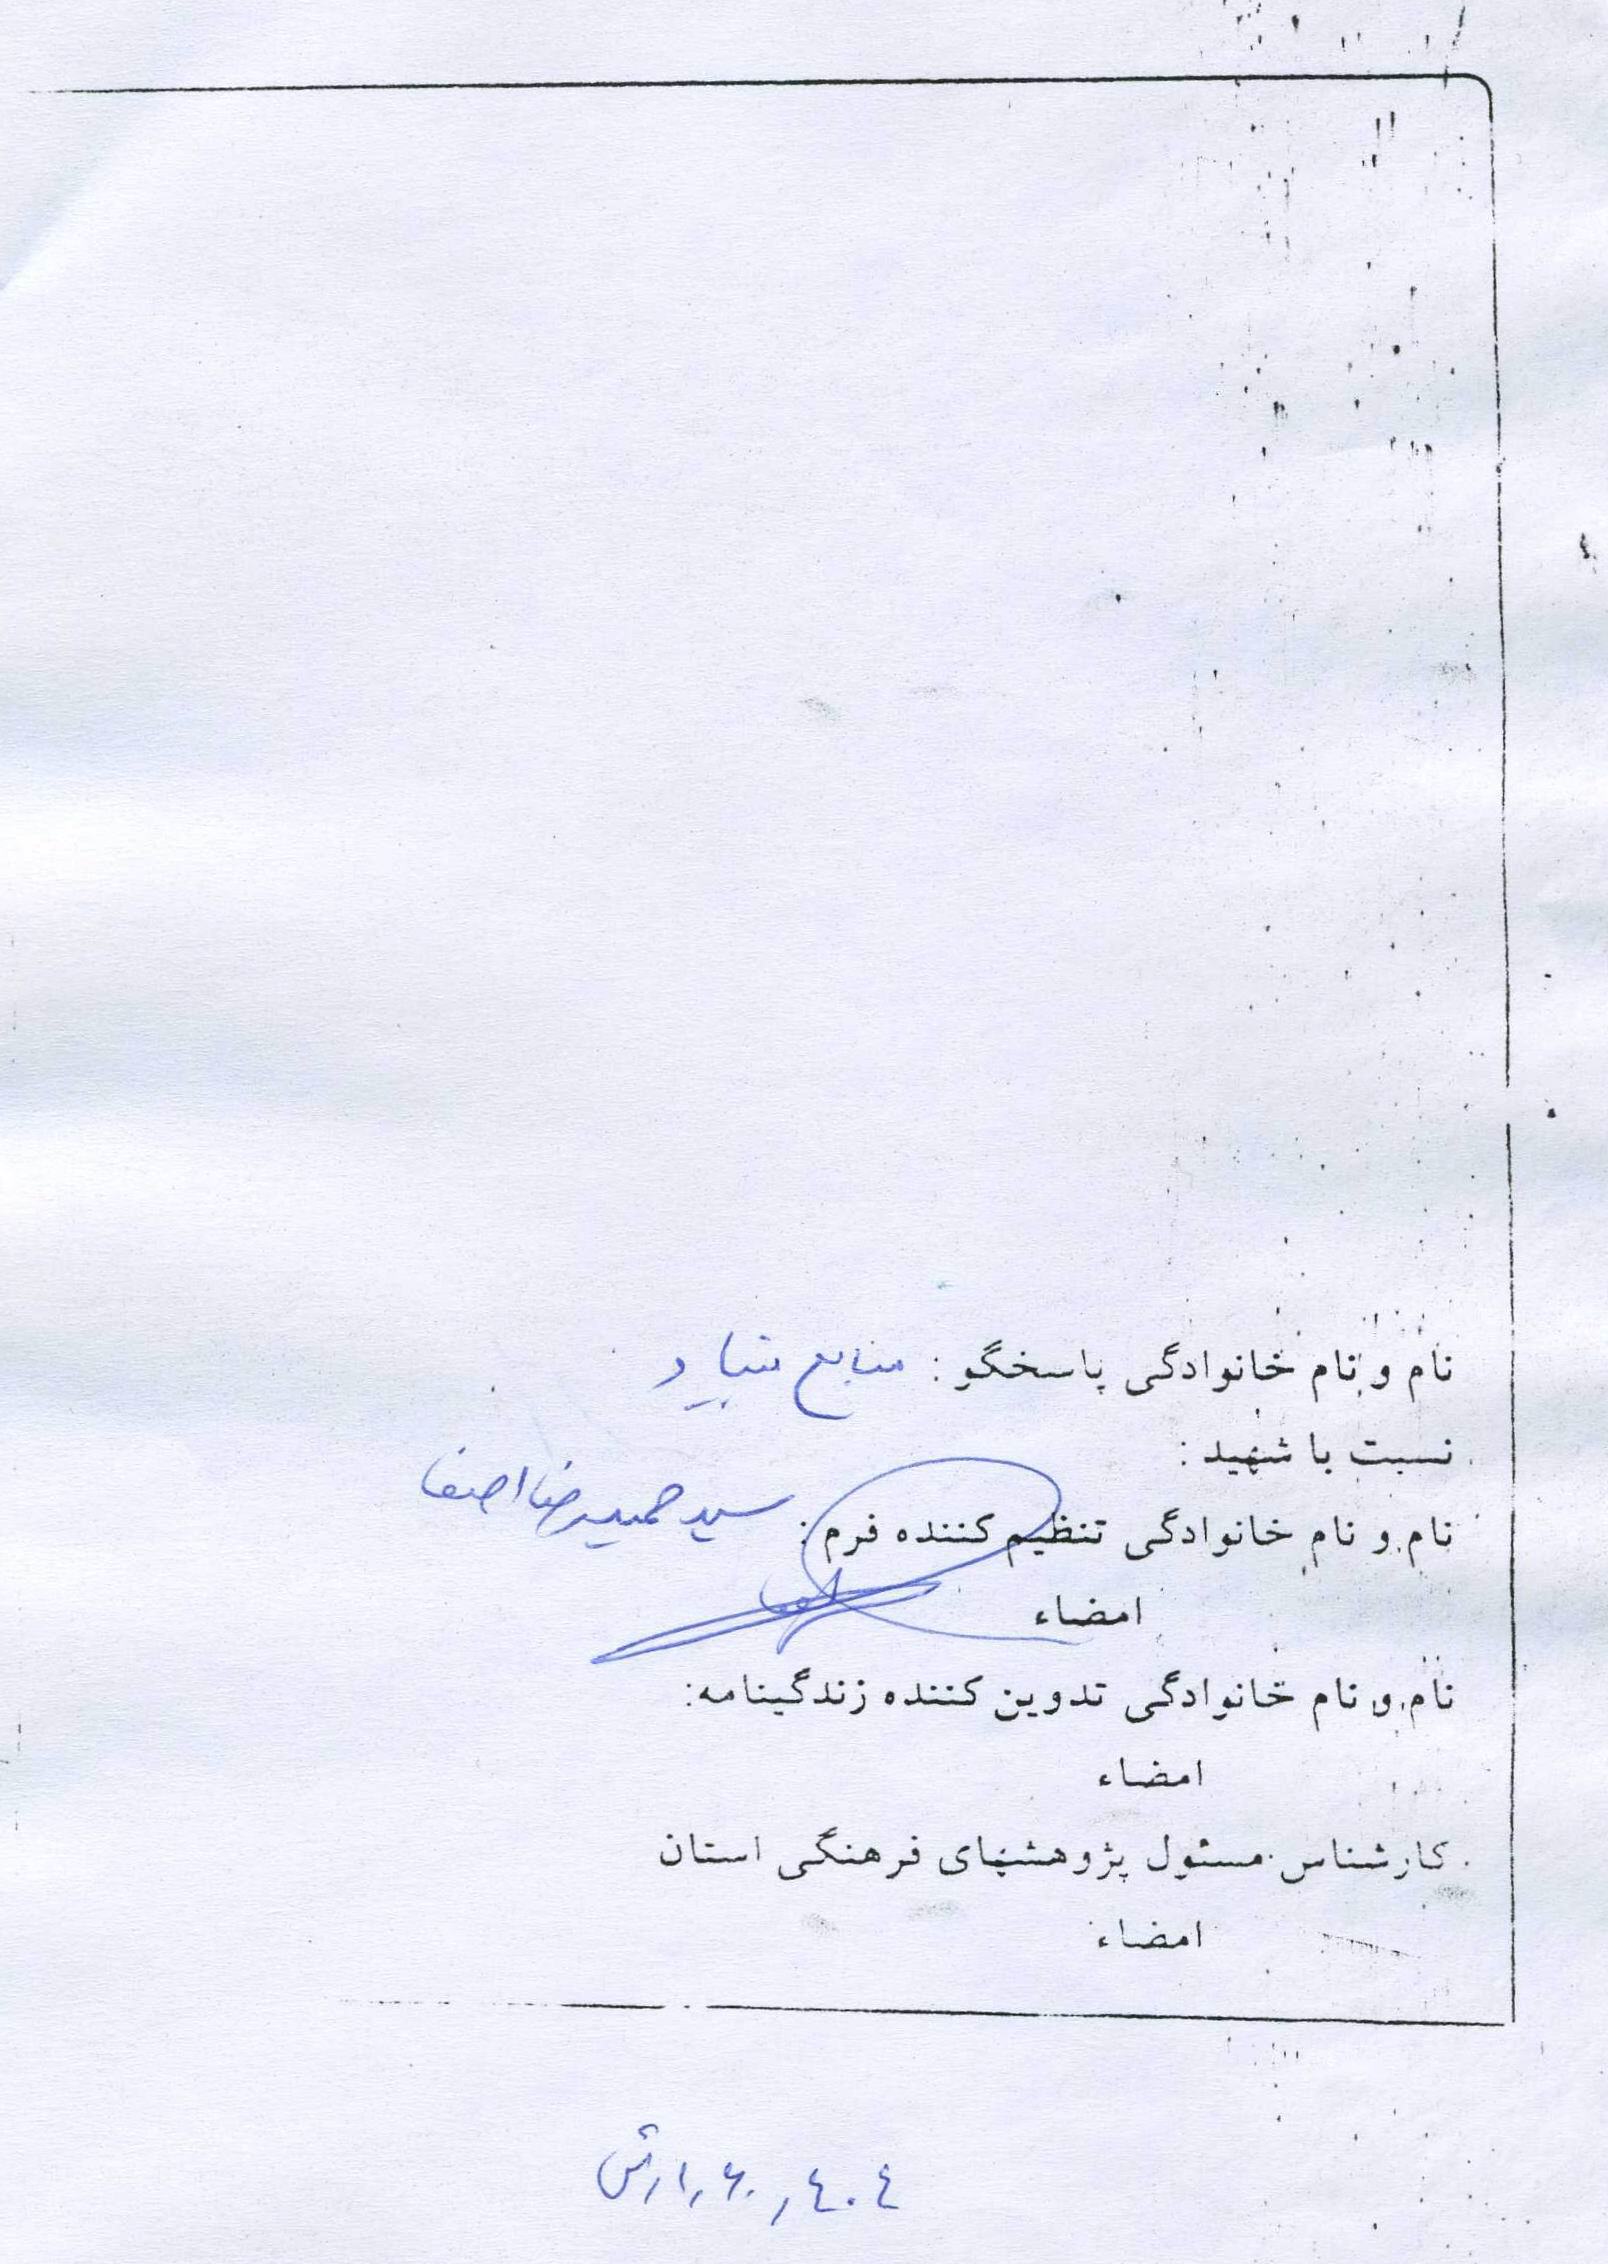 نام و نام خانوادگی پاسخگو : منابع بنیاد
نسبت با شهید :
نام و نام خانوادگی تنظیم کننده فرم : سید حمیدرضا اصنفا
امضاء
نام و نام خانوادگی تدوین کننده زندگینامه:
امضاء
کارشناس مسئول پژوهشهای فرهنگی استان
امضاء